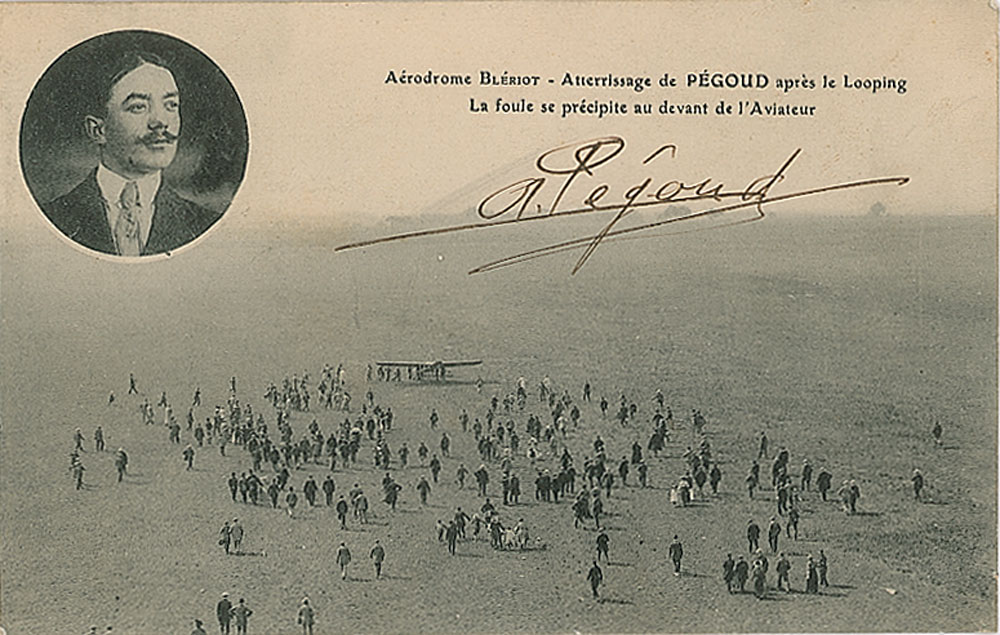 Aérodrome BLÉRIOT - Atterrissage de PÉGOUD après le Looping
La foule se précipite au devant de l'Aviateur
A. Pégoud